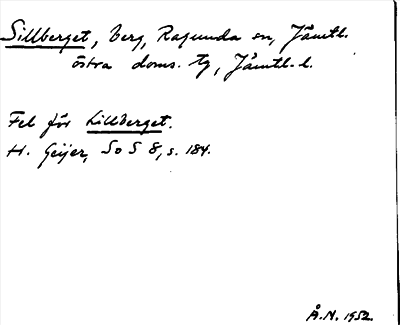 Sillberget, berg, Ragunda sn, Jämtl.
östra doms. tg, Jämtl. l.
Fel för Lillberget.
H. Geijer, SoS 8, s. 184.
Å.N. 1952.